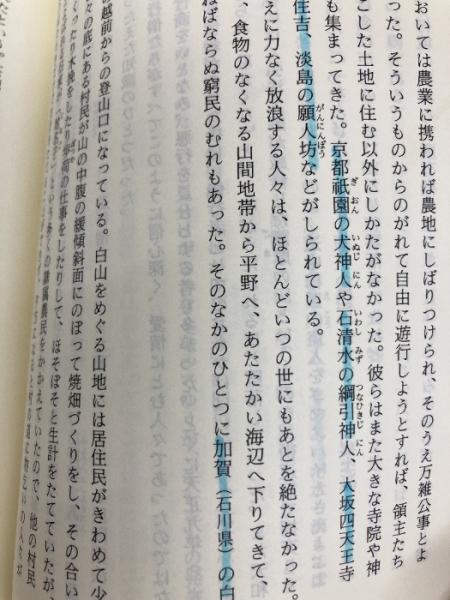 おいては農業に携われば農地にしばりつけられ、そのうえ万雑公事とよ
った。そういうものからのがれて自由に遊行しようとすれば、領主たち
こした土地に住む以外にしかたがなかった。彼らはまた大きな寺院や神
も集まってきた。京都祇園の犬神人や石清水の綱引神人、大坂四天王寺
住吉、淡島の願人坊などがしられている。
えに力なく放浪する人々は、ほとんどいつの世にもあとを絶たなかった。
、食物のなくなる山間地帯から平野へ、あたたかい海辺へ下りてきて、
ねばならぬ窮民のむれもあった。そのなかのひとつに加賀（石川県）の白
越前からの登山口になっている。白山をめぐる山地には居住民がきわめて少
々の底にある村民が山の中腹の緩傾斜面にのぼって焼畑づくりをし、その合い
くったり木挽をしたり
の仕事をしたりして、ほそぼそと生計をたてていたが、
という多くの隷属農民をかかえていたので、他の村民